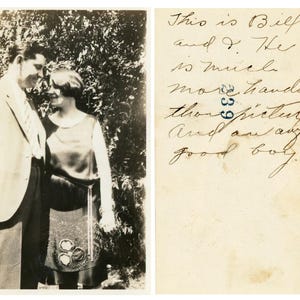 This is Bill
and I. He
is much
more hands
than picture
And an aw
good boy
339